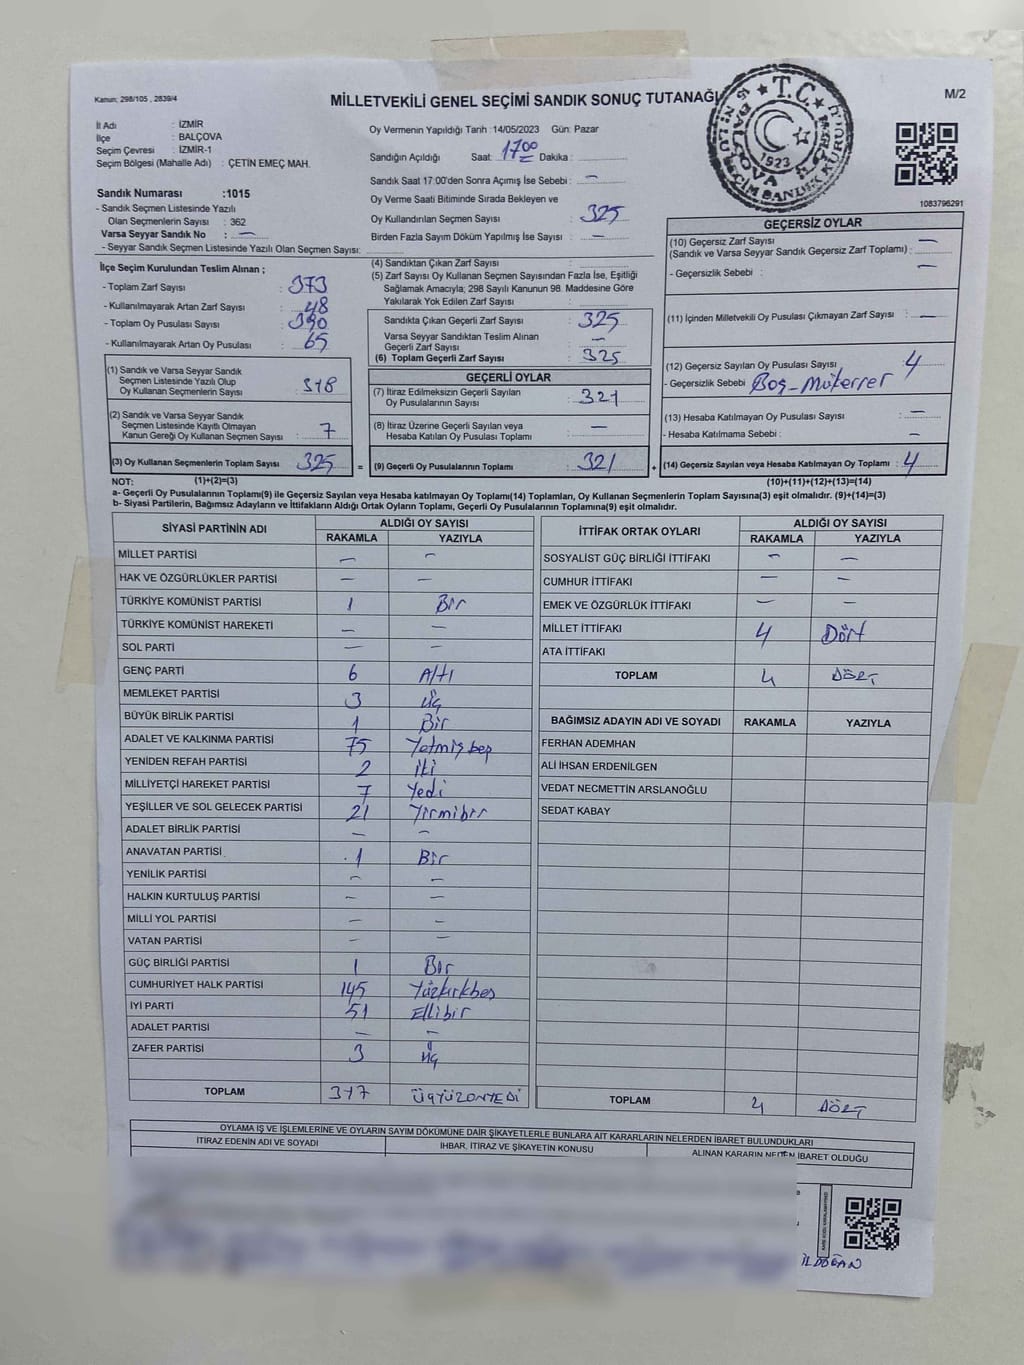 Kanun: 298/105 , 2839/4
MİLLETVEKİLİ GENEL SEÇİMİ SANDIK SONUÇ TUTANAĞI
M/2
İl Adı : İZMİR
İlçe : BALÇOVA
Seçim Çevresi : İZMİR-1
Seçim Bölgesi (Mahalle Adı) : ÇETİN EMEÇ MAH.
Oy Vermenin Yapıldığı Tarih : 14/05/2023 Gün: Pazar
Sandığın Açıldığı Saat: 17 00 Dakika :
Sandık Saat 17:00'den Sonra Açımış İse Sebebi : —
Oy Verme Saati Bitiminde Sırada Bekleyen ve
Oy Kullandırılan Seçmen Sayısı : 325
Birden Fazla Sayım Döküm Yapılmış İse Sayısı : —
T.C.
1923
BALÇOVA
1083796291
Sandık Numarası :1015
- Sandık Seçmen Listesinde Yazılı
Olan Seçmenlerin Sayısı : 362
Varsa Seyyar Sandık No : —
- Seyyar Sandık Seçmen Listesinde Yazılı Olan Seçmen Sayısı:
İlçe Seçim Kurulundan Teslim Alınan ;
- Toplam Zarf Sayısı : 373
- Kullanılmayarak Artan Zarf Sayısı : 48
- Toplam Oy Pusulası Sayısı : 390
- Kullanılmayarak Artan Oy Pusulası : 65
(1) Sandık ve Varsa Seyyar Sandık
Seçmen Listesinde Yazılı Olup
Oy Kullanan Seçmenlerin Sayısı : 318
(2) Sandık ve Varsa Seyyar Sandık
Seçmen Listesinde Kayıtlı Olmayan
Kanun Gereği Oy Kullanan Seçmen Sayısı : 7
(3) Oy Kullanan Seçmenlerin Toplam Sayısı : 325
(4) Sandıktan Çıkan Zarf Sayısı :
(5) Zarf Sayısı Oy Kullanan Seçmen Sayısından Fazla İse, Eşitliği
Sağlamak Amacıyla; 298 Sayılı Kanunun 98. Maddesine Göre
Yakılarak Yok Edilen Zarf Sayısı :
Sandıkta Çıkan Geçerli Zarf Sayısı : 325
Varsa Seyyar Sandıktan Teslim Alınan
Geçerli Zarf Sayısı : —
(6) Toplam Geçerli Zarf Sayısı : 325
GEÇERLİ OYLAR
(7) İtiraz Edilmeksizin Geçerli Sayılan
Oy Pusulalarının Sayısı : 321
(8) İtiraz Üzerine Geçerli Sayılan veya
Hesaba Katılan Oy Pusulası Toplamı : —
= (9) Geçerli Oy Pusulalarının Toplamı : 321 +
GEÇERSİZ OYLAR
(10) Geçersiz Zarf Sayısı
(Sandık ve Varsa Seyyar Sandık Geçersiz Zarf Toplamı) : —
- Geçersizlik Sebebi : —
(11) İçinden Milletvekili Oy Pusulası Çıkmayan Zarf Sayısı : —
(12) Geçersiz Sayılan Oy Pusulası Sayısı : 4
- Geçersizlik Sebebi : Boş-Mükerrer
(13) Hesaba Katılmayan Oy Pusulası Sayısı : —
- Hesaba Katılmama Sebebi : —
(14) Geçersiz Sayılan veya Hesaba Katılmayan Oy Toplamı : 4
NOT: (1)+(2)=(3)
(10)+(11)+(12)+(13)=(14)
a- Geçerli Oy Pusulalarının Toplamı(9) ile Geçersiz Sayılan veya Hesaba katılmayan Oy Toplamı(14) Toplamları, Oy Kullanan Seçmenlerin Toplam Sayısına(3) eşit olmalıdır. (9)+(14)=(3)
b- Siyasi Partilerin, Bağımsız Adayların ve İttifakların Aldığı Ortak Oyların Toplamı, Geçerli Oy Pusulalarının Toplamına(9) eşit olmalıdır.
SİYASİ PARTİNİN ADI ALDIĞI OY SAYISI
RAKAMLA YAZIYLA
MİLLET PARTİSİ — —
HAK VE ÖZGÜRLÜKLER PARTİSİ — —
TÜRKİYE KOMÜNİST PARTİSİ 1 Bir
TÜRKİYE KOMÜNİST HAREKETİ — —
SOL PARTİ — —
GENÇ PARTİ 6 Altı
MEMLEKET PARTİSİ 3 Üç
BÜYÜK BİRLİK PARTİSİ 1 Bir
ADALET VE KALKINMA PARTİSİ 75 Yetmiş beş
YENİDEN REFAH PARTİSİ 2 İki
MİLLİYETÇİ HAREKET PARTİSİ 7 Yedi
YEŞİLLER VE SOL GELECEK PARTİSİ 21 Yirmibir
ADALET BİRLİK PARTİSİ — —
ANAVATAN PARTİSİ 1 Bir
YENİLİK PARTİSİ — —
HALKIN KURTULUŞ PARTİSİ — —
MİLLİ YOL PARTİSİ — —
VATAN PARTİSİ — —
GÜÇ BİRLİĞİ PARTİSİ 1 Bir
CUMHURİYET HALK PARTİSİ 145 Yüzkırkbeş
İYİ PARTİ 51 Ellibir
ADALET PARTİSİ — —
ZAFER PARTİSİ 3 Üç
TOPLAM 317 ÜÇYÜZONYEDİ
İTTİFAK ORTAK OYLARI ALDIĞI OY SAYISI
RAKAMLA YAZIYLA
SOSYALİST GÜÇ BİRLİĞİ İTTİFAKI — —
CUMHUR İTTİFAKI — —
EMEK VE ÖZGÜRLÜK İTTİFAKI — —
MİLLET İTTİFAKI 4 Dört
ATA İTTİFAKI
TOPLAM 4 DÖRT
BAĞIMSIZ ADAYIN ADI VE SOYADI RAKAMLA YAZIYLA
FERHAN ADEMHAN
ALİ İHSAN ERDENİLGEN
VEDAT NECMETTİN ARSLANOĞLU
SEDAT KABAY
TOPLAM 4 DÖRT
OYLAMA İŞ VE İŞLEMLERİNE VE OYLARIN SAYIM DÖKÜMÜNE DAİR ŞİKAYETLERLE BUNLARA AİT KARARLARIN NELERDEN İBARET BULUNDUKLARI
İTİRAZ EDENİN ADI VE SOYADI İHBAR, İTİRAZ VE ŞİKAYETİN KONUSU ALINAN KARARIN NEDEN İBARET OLDUĞU
İLDOĞAN